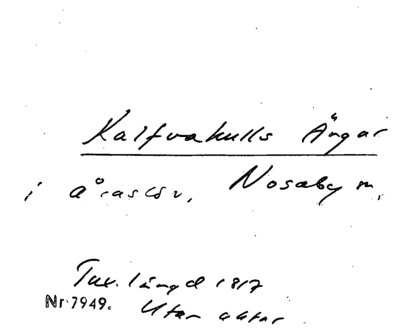 Kalfvakulls Ängar
i Åraslöv, Nosaby m.
Tax. längd 1817
Nr 7949. Utan aktar